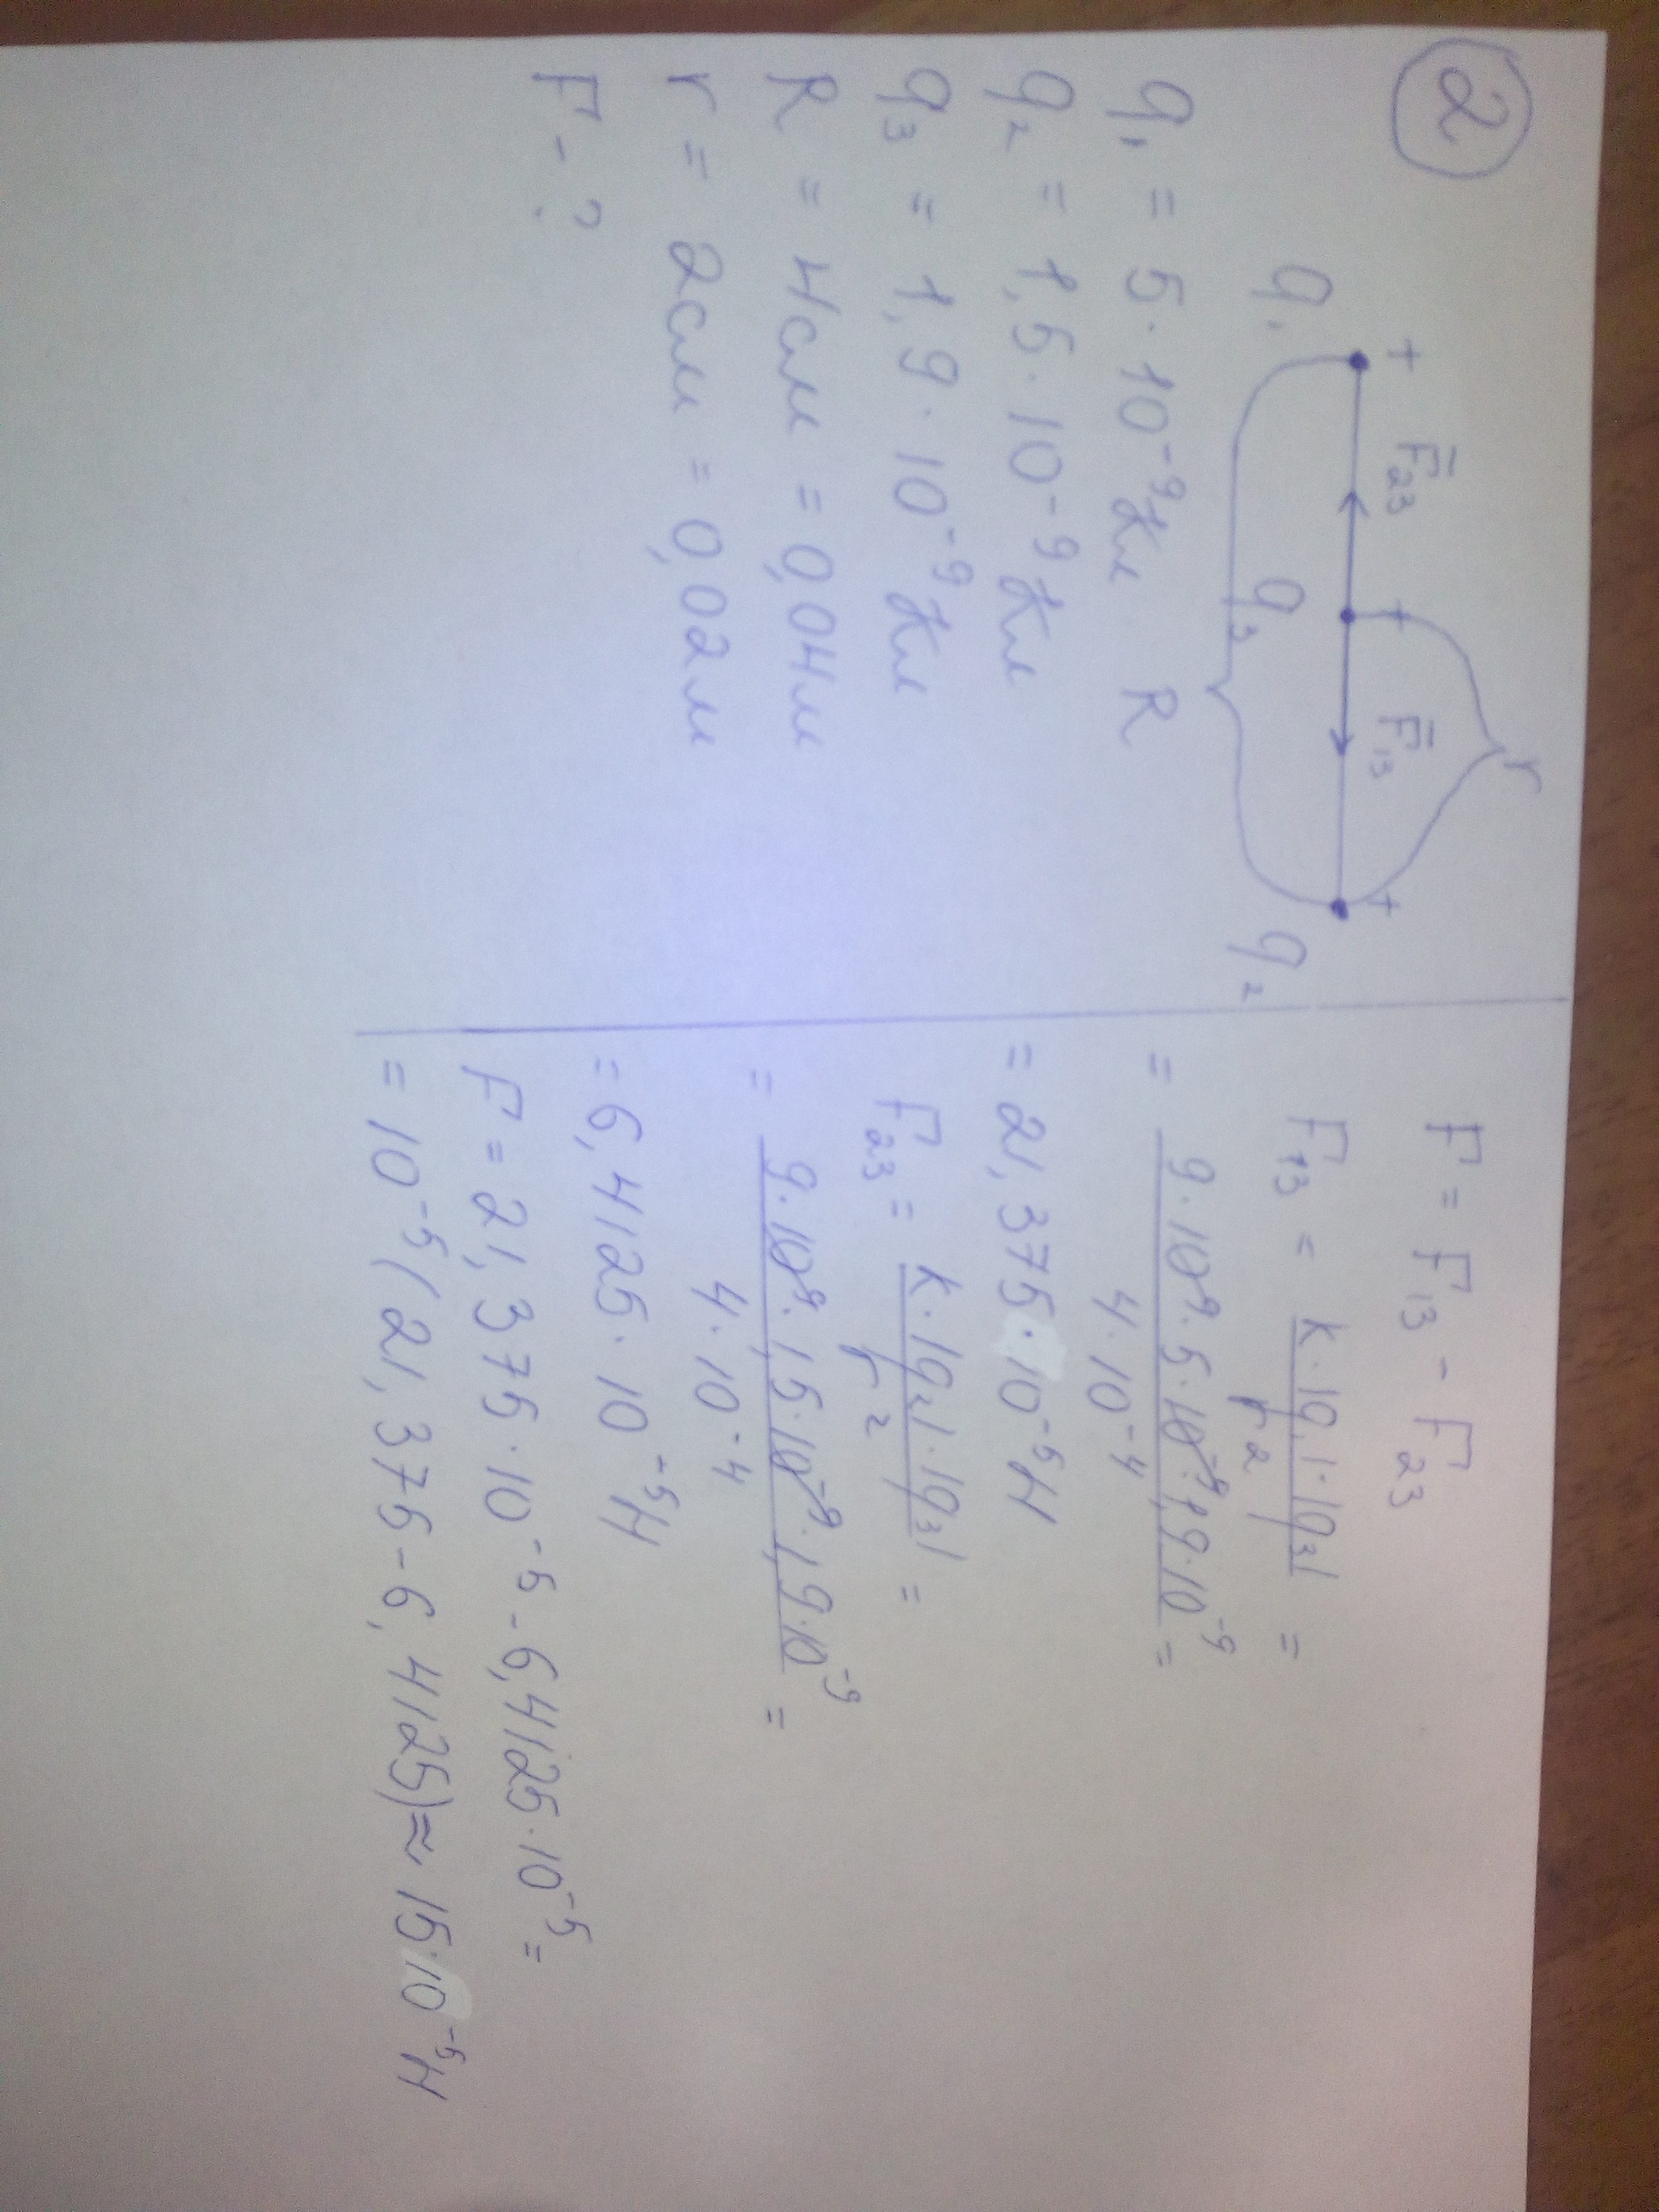 2
r
+ F̄₂₃ + F̄₁₃ +
q₁ q₃ q₂
R
q₁ = 5·10⁻⁹Кл
q₂ = 1,5·10⁻⁹Кл
q₃ = 1,9·10⁻⁹Кл
R = 4см = 0,04м
r = 2см = 0,02м
F - ?
F = F₁₃ - F₂₃
F₁₃ = k·|q₁|·|q₃| / r² =
= 9·10⁹·5·10⁻⁹·1,9·10⁻⁹ / 4·10⁻⁴ =
= 21,375·10⁻⁵Н
F₂₃ = k·|q₂|·|q₃| / r² =
= 9·10⁹·1,5·10⁻⁹·1,9·10⁻⁹ / 4·10⁻⁴ =
= 6,4125·10⁻⁵Н
F = 21,375·10⁻⁵ - 6,4125·10⁻⁵ =
= 10⁻⁵(21,375-6,4125) ≈ 15·10⁻⁵Н